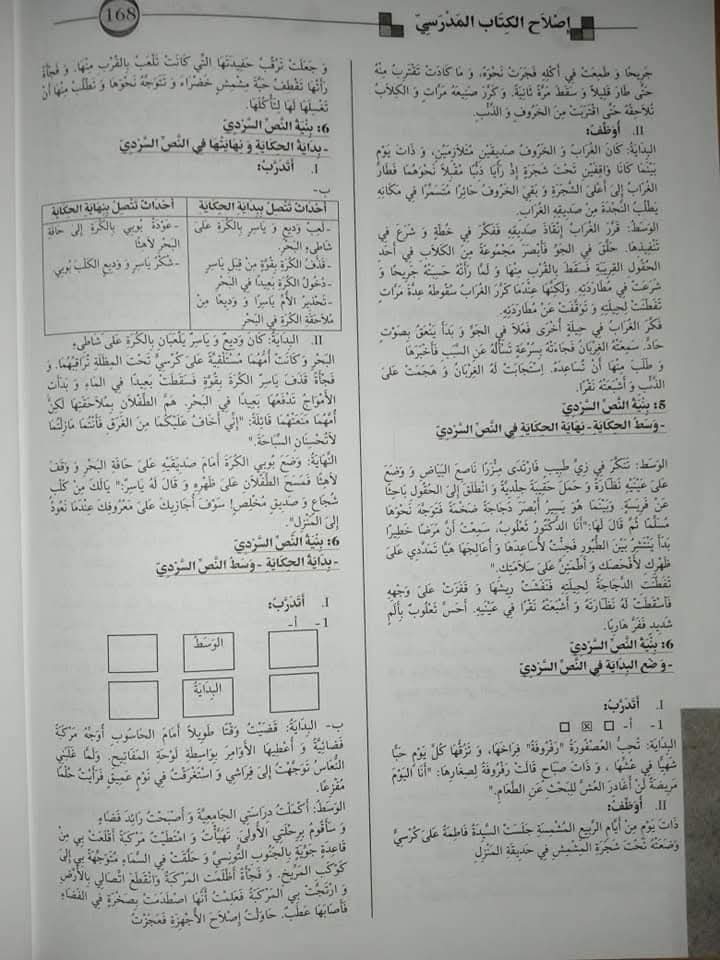 168
إِصْلَاحُ الكِتَابِ المَدْرَسِيِّ
جَرِيحًا وَ طَمِعَتْ فِي أَكْلِهِ فَجَرَتْ نَحْوَهُ، وَ مَا كَادَتْ تَقْتَرِبُ مِنْهُ
حَتَّى طَارَ قَلِيلاً وَ سَقَطَ مَرَّةً ثَانِيَةً. وَ كَرَّرَ صَنِيعَهُ مَرَّاتٍ وَ الكِلَابُ
تُلَاحِقُهُ حَتَّى اقْتَرَبَتْ مِنَ الخَرُوفِ وَ الذِّئْبِ.
II. أُوَظِّفُ:
البِدَايَةُ: كَانَ الغُرَابُ وَ الخَرُوفُ صَدِيقَيْنِ مُتَلَازِمَيْنِ، وَ ذَاتَ يَوْمٍ
بَيْنَمَا كَانَا وَاقِفَيْنِ تَحْتَ شَجَرَةٍ إِذْ رَأَيَا ذِئْبًا مُقْبِلاً نَحْوَهُمَا فَطَارَ
الغُرَابُ إِلَى أَعْلَى الشَّجَرَةِ وَ بَقِيَ الخَرُوفُ حَائِرًا مُتَسَمِّرًا فِي مَكَانِهِ
يَطْلُبُ النَّجْدَةَ مِنْ صَدِيقِهِ الغُرَابِ.
الوَسَطُ: قَرَّرَ الغُرَابُ إِنْقَاذَ صَدِيقِهِ فَفَكَّرَ فِي خُطَّةٍ وَ شَرَعَ فِي
تَنْفِيذِهَا. حَلَّقَ فِي الجَوِّ فَأَبْصَرَ مَجْمُوعَةً مِنَ الكِلَابِ فِي أَحَدِ
الحُقُولِ القَرِيبَةِ فَسَقَطَ بِالقُرْبِ مِنْهَا وَ لَمَّا رَأَتْهُ حَسِبَتْهُ جَرِيحًا وَ
شَرَعَتْ فِي مُطَارَدَتِهِ. وَلَكِنَّهَا عِنْدَمَا كَرَّرَ الغُرَابُ سُقُوطَهُ عِدَّةَ مَرَّاتٍ
تَفَطَّنَتْ لِحِيلَتِهِ وَ تَوَقَّفَتْ عَنْ مُطَارَدَتِهِ.
فَكَّرَ الغُرَابُ فِي حِيلَةٍ أُخْرَى فَعَلَا فِي الجَوِّ وَ بَدَأَ يَنْعَقُ بِصَوْتٍ
حَادٍّ. سَمِعَتْهُ الغِرْبَانُ فَجَاءَتْهُ بِسُرْعَةٍ تَسْأَلُهُ عَنِ السَّبَبِ فَأَخْبَرَهَا
وَ طَلَبَ مِنْهَا أَنْ تُسَاعِدَهُ. اِسْتَجَابَتْ لَهُ الغِرْبَانُ وَ هَجَمَتْ عَلَى
الذِّئْبِ وَ أَشْبَعَتْهُ نَقْرًا.
5: بِنْيَةُ النَّصِّ السَّرْدِيِّ
- وَسَطُ الحِكَايَةِ - نِهَايَةُ الحِكَايَةِ فِي النَّصِّ السَّرْدِيِّ
الوَسَطُ: تَنَكَّرَ فِي زِيِّ طَبِيبٍ فَارْتَدَى مِئْزَرًا نَاصِعَ البَيَاضِ وَ وَضَعَ
عَلَى عَيْنَيْهِ نَظَّارَةً وَ حَمَلَ حَقِيبَةً جِلْدِيَّةً وَ انْطَلَقَ إِلَى الحُقُولِ بَاحِثًا
عَنْ فَرِيسَةٍ. وَبَيْنَمَا هُوَ يَسِيرُ أَبْصَرَ دَجَاجَةً ضَخْمَةً فَتَوَجَّهَ نَحْوَهَا
مُسَلِّمًا ثُمَّ قَالَ لَهَا:"أَنَا الدُّكْتُورُ ثَعْلُوبٌ، سَمِعْتُ أَنَّ مَرَضًا خَطِيرًا
بَدَأَ يَنْتَشِرُ بَيْنَ الطُّيُورِ فَجِئْتُ لِأُسَاعِدَهَا وَ أُعَالِجَهَا هَيَّا تَمَدَّدِي عَلَى
ظَهْرِكِ لِأَفْحَصَكِ وَ أَطْمَئِنَّ عَلَى سَلَامَتِكِ."
تَفَطَّنَتِ الدَّجَاجَةُ لِحِيلَتِهِ فَنَفَشَتْ رِيشَهَا وَ قَفَزَتْ عَلَى وَجْهِهِ
فَأَسْقَطَتْ لَهُ نَظَّارَتَهُ وَ أَشْبَعَتْهُ نَقْرًا فِي عَيْنَيْهِ. أَحَسَّ ثَعْلُوبٌ بِأَلَمٍ
شَدِيدٍ فَفَرَّ هَارِبًا.
6: بِنْيَةُ النَّصِّ السَّرْدِيِّ
- وَضْعُ البِدَايَةِ فِي النَّصِّ السَّرْدِيِّ
I. أَتَدَرَّبُ:
1- أ- ☐ ☒ ☐
البِدَايَةُ: تُحِبُّ العُصْفُورَةُ "رَفْرُوفَةُ" فِرَاخَهَا، وَ تَزُقُّهَا كُلَّ يَوْمٍ حَبًّا
شَهِيًّا فِي عُشِّهَا ، وَ ذَاتَ صَبَاحٍ قَالَتْ رَفْرُوفَةُ لِصِغَارِهَا: "أَنَا اليَوْمَ
مَرِيضَةٌ لَنْ أُغَادِرَ العُشَّ لِلْبَحْثِ عَنِ الطَّعَامِ."
II. أُوَظِّفُ:
ذَاتَ يَوْمٍ مِنْ أَيَّامِ الرَّبِيعِ المُشْمِسَةِ جَلَسَتِ السَّيِّدَةُ فَاطِمَةُ عَلَى كُرْسِيٍّ
وَضَعَتْهُ تَحْتَ شَجَرَةِ المِشْمِشِ فِي حَدِيقَةِ المَنْزِلِ
وَ جَعَلَتْ تَرْقُبُ حَفِيدَتَهَا الَّتِي كَانَتْ تَلْعَبُ بِالقُرْبِ مِنْهَا. وَ فَجْأَةً
رَأَتْهَا تَقْطِفُ حَبَّةَ مِشْمِشٍ خَضْرَاءَ وَ تَتَوَجَّهُ نَحْوَهَا وَ تَطْلُبُ مِنْهَا أَنْ
تَغْسِلَهَا لَهَا لِتَأْكُلَهَا.
6: بِنْيَةُ النَّصِّ السَّرْدِيِّ
- بِدَايَةُ الحِكَايَةِ وَ نِهَايَتُهَا فِي النَّصِّ السَّرْدِيِّ
I. أَتَدَرَّبُ:
ب-
أَحْدَاثٌ تَتَّصِلُ بِبِدَايَةِ الحِكَايَةِ
أَحْدَاثٌ تَتَّصِلُ بِنِهَايَةِ الحِكَايَةِ
-لَعِبُ وَدِيعٍ وَ يَاسِرٍ بِالكُرَةِ عَلَى
شَاطِئِ البَحْرِ.
-قَذْفُ الكُرَةِ بِقُوَّةٍ مِنْ قِبَلِ يَاسِرٍ
-دُخُولُ الكُرَةِ بَعِيدًا فِي البَحْرِ.
-تَحْذِيرُ الأُمِّ يَاسِرًا وَ وَدِيعًا مِنْ
مُلَاحَقَةِ الكُرَةِ فِي البَحْرِ
-عَوْدَةُ بُوبِي بِالكُرَةِ إِلَى حَافَةِ
البَحْرِ لَاهِثًا
-شُكْرُ يَاسِرٍ وَ وَدِيعٍ الكَلْبَ بُوبِي
II. البِدَايَةُ: كَانَ وَدِيعٌ وَ يَاسِرٌ يَلْعَبَانِ بِالكُرَةِ عَلَى شَاطِئِ
البَحْرِ وَ كَانَتْ أُمُّهُمَا مُسْتَلْقِيَةً عَلَى كُرْسِيٍّ تَحْتَ المِظَلَّةِ تُرَاقِبُهُمَا. وَ
فَجْأَةً قَذَفَ يَاسِرٌ الكُرَةَ بِقُوَّةٍ فَسَقَطَتْ بَعِيدًا فِي المَاءِ وَ بَدَأَتِ
الأَمْوَاجُ تَدْفَعُهَا بَعِيدًا فِي البَحْرِ. هَمَّ الطِّفْلَانِ بِمُلَاحَقَتِهَا لَكِنَّ
أُمَّهُمَا مَنَعَتْهُمَا قَائِلَةً: "إِنِّي أَخَافُ عَلَيْكُمَا مِنَ الغَرَقِ فَأَنْتُمَا مَازِلْتُمَا
لَا تُحْسِنَانِ السِّبَاحَةَ."
النِّهَايَةُ: وَضَعَ بُوبِي الكُرَةَ أَمَامَ صَدِيقَيْهِ عَلَى حَافَةِ البَحْرِ وَ وَقَفَ
لَاهِثًا فَمَسَحَ الطِّفْلَانِ عَلَى ظَهْرِهِ وَ قَالَ لَهُ يَاسِرٌ:" يَالَكَ مِنْ كَلْبٍ
شُجَاعٍ وَ صَدِيقٍ مُخْلِصٍ! سَوْفَ أُجَازِيكَ عَلَى مَعْرُوفِكَ عِنْدَمَا نَعُودُ
إِلَى المَنْزِلِ".
6: بِنْيَةُ النَّصِّ السَّرْدِيِّ
- بِدَايَةُ الحِكَايَةِ - وَسَطُ النَّصِّ السَّرْدِيِّ
I. أَتَدَرَّبُ:
1- أ-
الوَسَطُ
البِدَايَةُ
ب- البِدَايَةُ: قَضَيْتُ وَقْتًا طَوِيلاً أَمَامَ الحَاسُوبِ أُوَجِّهُ مَرْكَبَةً
فَضَائِيَّةً وَ أُعْطِيهَا الأَوَامِرَ بِوَاسِطَةِ لَوْحَةِ المَفَاتِيحِ. وَلَمَّا غَلَبَنِي
النُّعَاسُ تَوَجَّهْتُ إِلَى فِرَاشِي وَ اسْتَغْرَقْتُ فِي نَوْمٍ عَمِيقٍ فَرَأَيْتُ حُلْمًا
مُفْزِعًا.
الوَسَطُ: أَكْمَلْتُ دِرَاسَتِي الجَامِعِيَّةَ وَ أَصْبَحْتُ رَائِدَ فَضَاءٍ
وَ سَأَقُومُ بِرِحْلَتِي الأُولَى. تَهَيَّأْتُ وَ امْتَطَيْتُ مَرْكَبَةً أَقْلَعَتْ بِي مِنْ
قَاعِدَةٍ جَوِّيَّةٍ بِالجَنُوبِ التُّونُسِيِّ وَ حَلَّقَتْ فِي السَّمَاءِ مُتَوَجِّهَةً بِي إِلَى
كَوْكَبِ المَرِّيخِ. وَ فَجْأَةً أَظْلَمَتِ المَرْكَبَةُ وَ انْقَطَعَ اتِّصَالِي بِالأَرْضِ
وَ ارْتَجَّتْ بِي المَرْكَبَةُ فَعَلِمْتُ أَنَّهَا اصْطَدَمَتْ بِصَخْرَةٍ فِي الفَضَاءِ
فَأَصَابَهَا عَطَبٌ. حَاوَلْتُ إِصْلَاحَ الأَجْهِزَةِ فَعَجَزْتُ